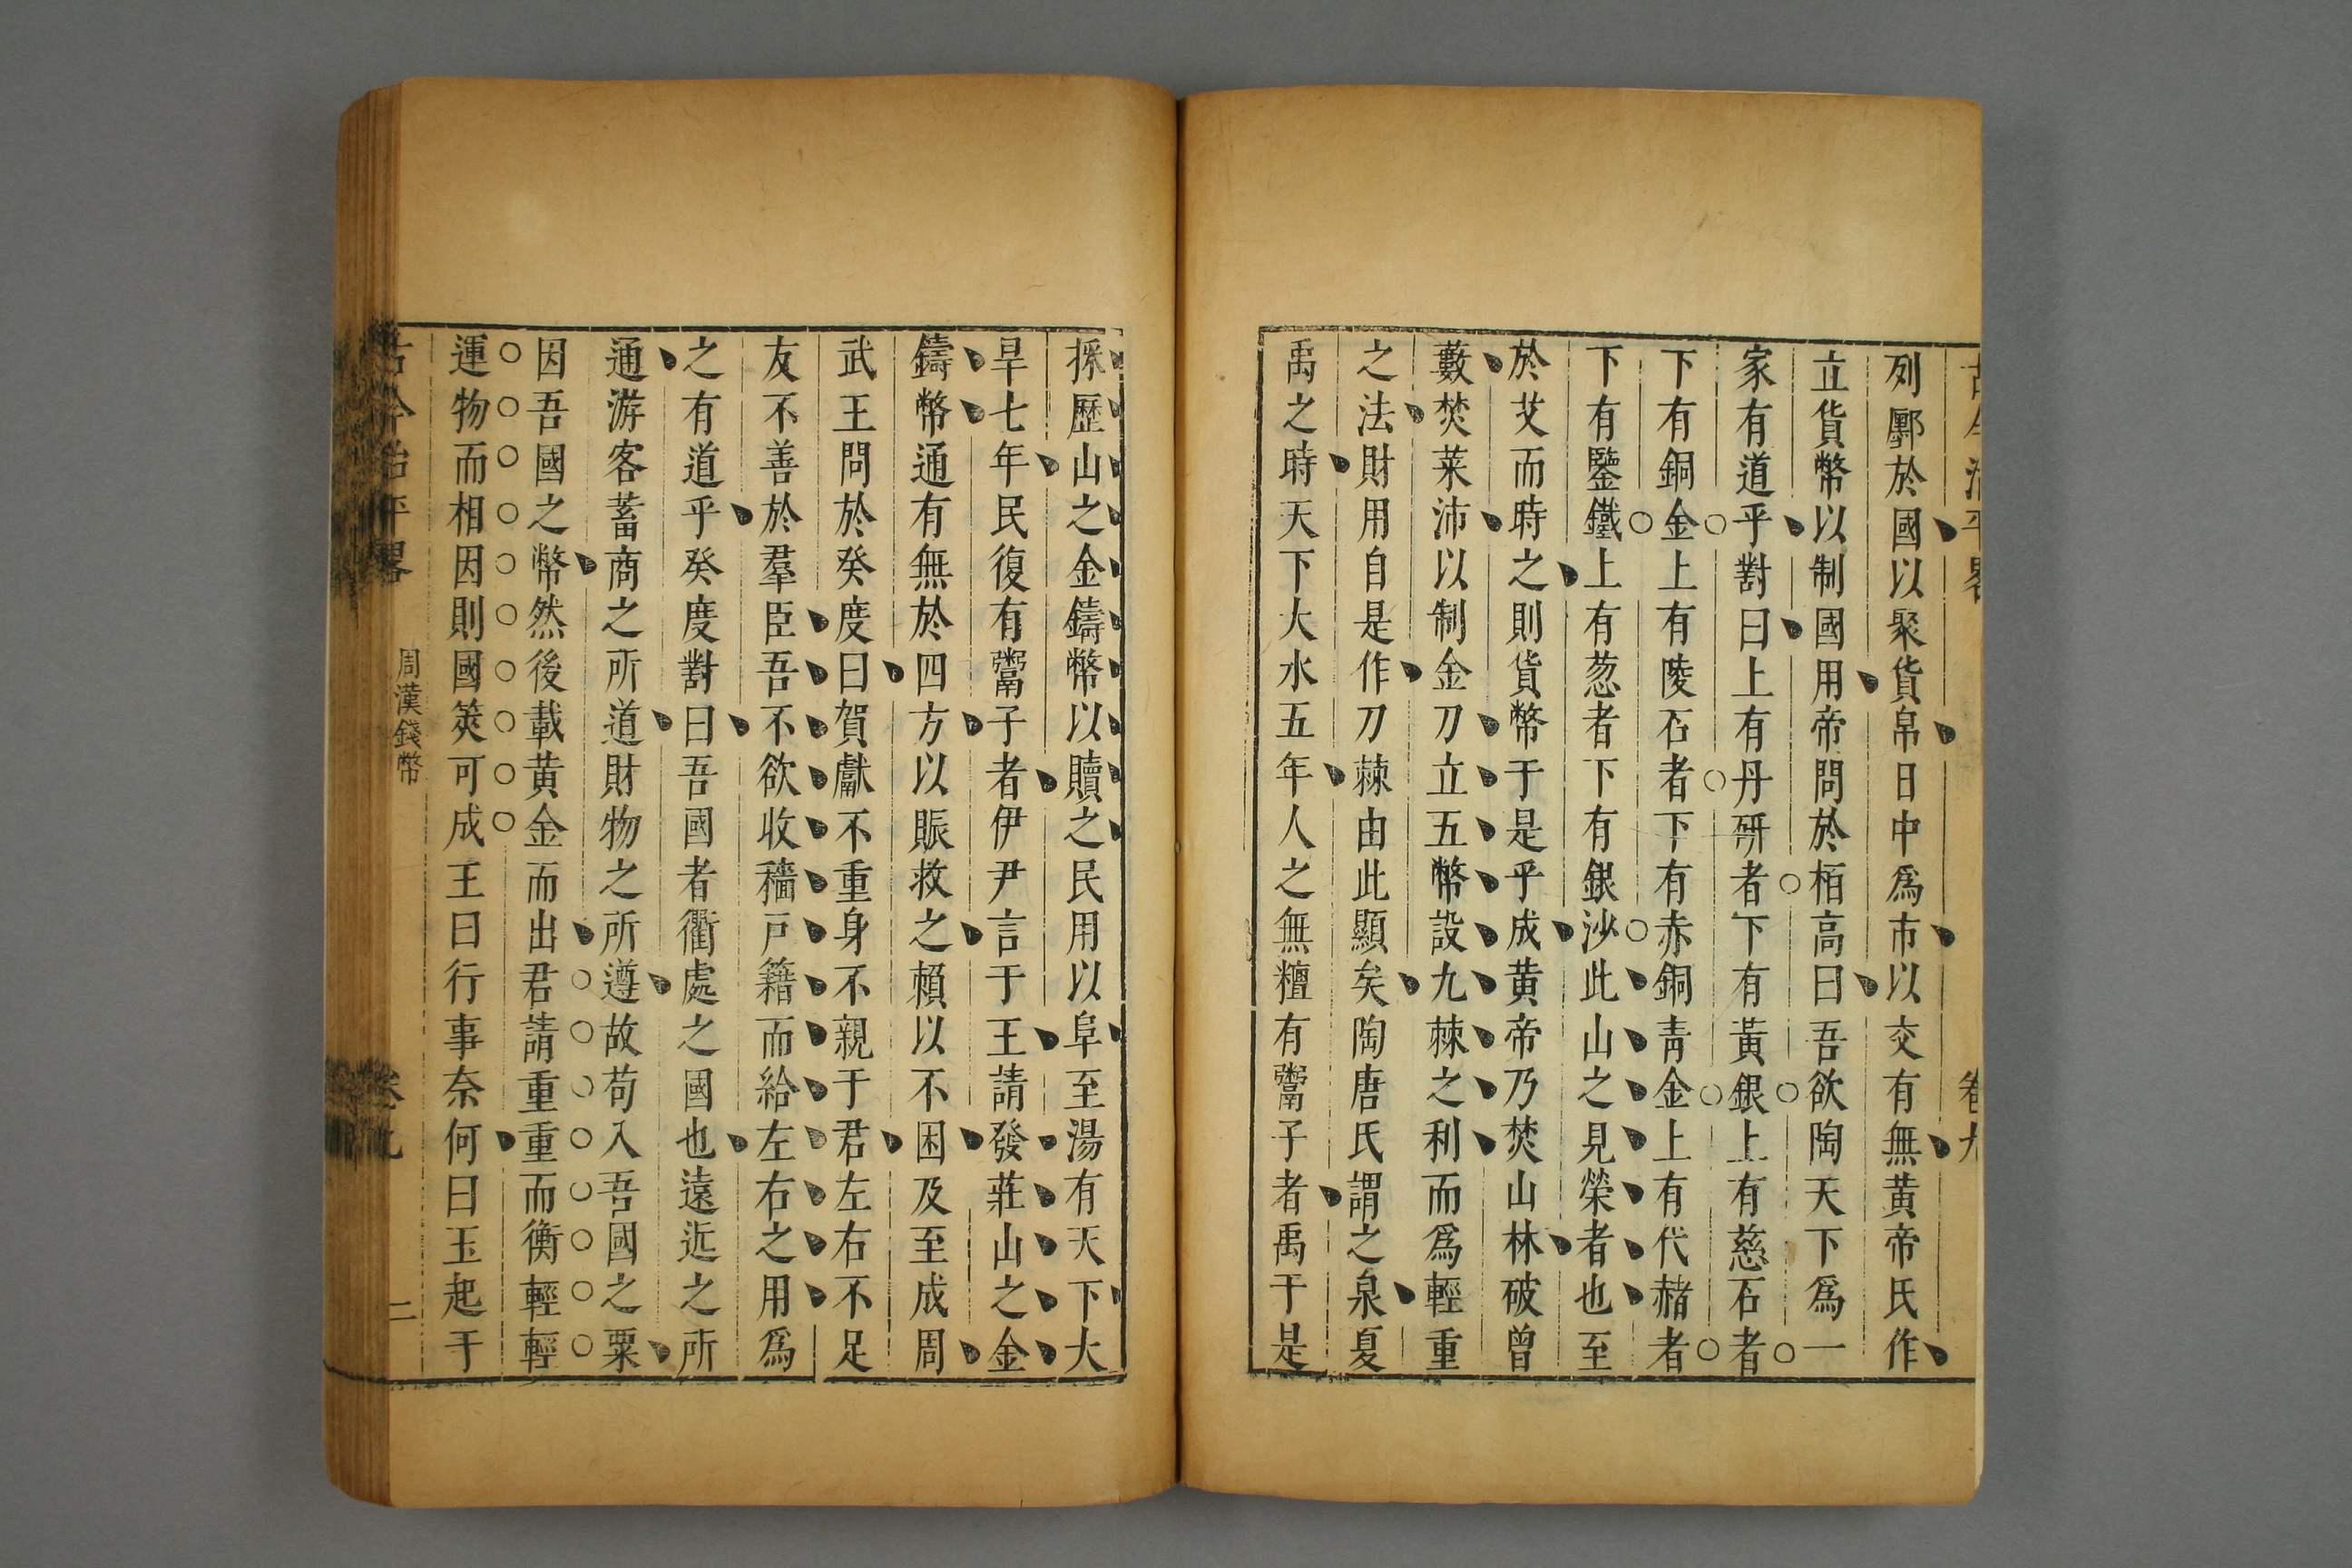 列鄽於國以聚貨帛日中爲市以交有無黃帝氏作
立貨幣以制國用帝問於栢高曰吾欲陶天下爲一
家有道乎對曰上有丹矸者下有黃銀上有慈石者
下有銅金上有陵石者下有赤銅靑金上有代赭者
下有鑒鐵上有葱者下有銀沙此山之見榮者也至
於艾而時之則貨幣于是乎成黃帝乃焚山林破曾
藪焚萊沛以制金刀立五幣設九棘之利而爲輕重
之法財用自是作刀棘由此顯矣陶唐氏謂之泉夏
禹之時天下大水五年人之無𥼷有鬻子者禹于是
採歷山之金鑄幣以贖之民用以阜至湯有天下大
旱七年民復有鬻子者伊尹言于王請發莊山之金
鑄幣通有無於四方以賑救之賴以不困及至成周
武王問於癸度曰賀獻不重身不親于君左右不足
友不善於羣臣吾不欲收穡戸籍而給左右之用爲
之有道乎癸度對曰吾國者衢處之國也遠近之所
通游客蓄商之所道財物之所遵故苟入吾國之粟
因吾國之幣然後載黃金而出君請重重而衡輕輕
運物而相因則國筴可成王曰行事奈何曰玉起于
古今治平畧
周漢錢幣
卷九
二